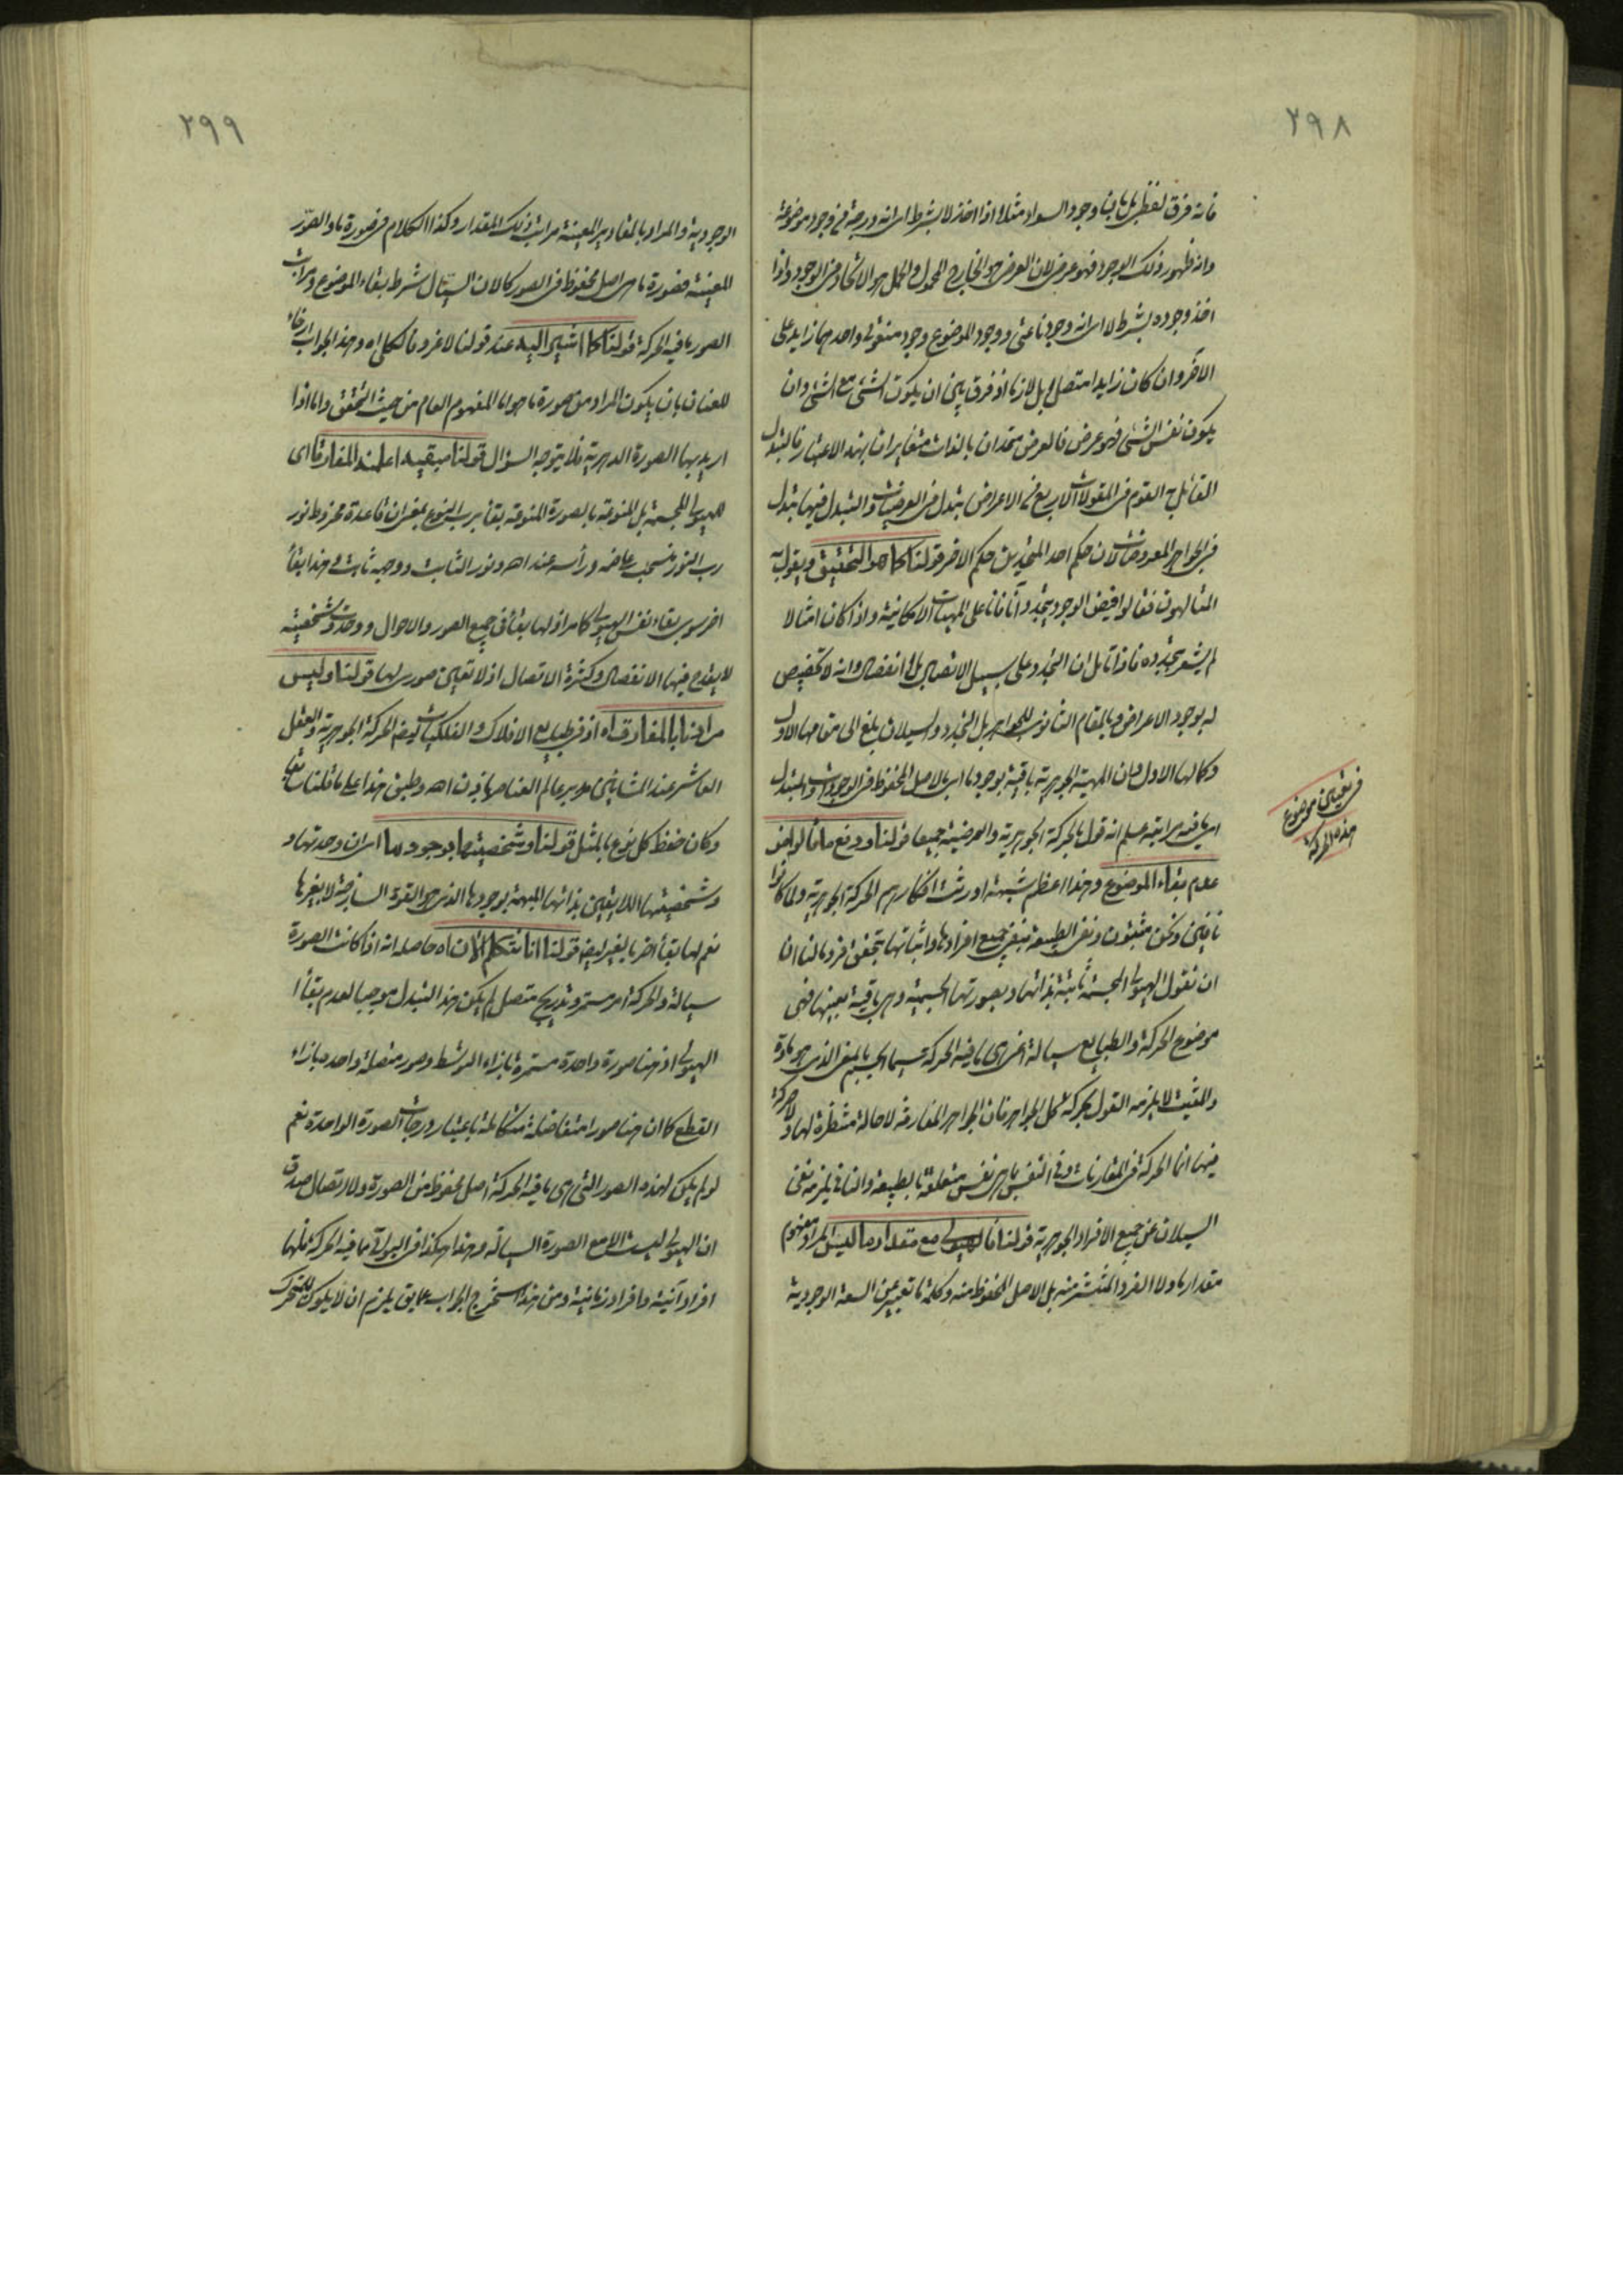 ٢٩٨
فانه فرق لفظي بل ها هنا وجود السواد مثلا اذا اخذ لا بشرط اى انه درجة فى وجود موضوعه
وانه ظهور ذلك الوجود فهو عرضى لان العرضى هو الخارج المحمول والحمل هو الاتحاد فى الوجود واذا
اخذ وجوده بشرط لا اى انه وجود ناعتى ووجود الموضوع وجود منعوتى واحدهما زايد على
الآخر وان كان زايدا متصلا بل لازما اذ فرق بين ان يكون الشئ مع الشئ وان
يكون نفس الشئ فهو عرض فالعرض متحدان بالذات متغايران بهذا الاعتبار فالتبدل
القائل به القوم فى المقولات الاربع فى الاعراض تبدل فى العرضيات والتبدل فيها تبدل
فى الجواهر المعروضات لان حكم احد المتحدين حكم الاخر قولنا كما هو التحقيق ويقول به
المتالهون فقالوا فيض الوجود يتجدد آنا فانا على المهيات الامكانية واذ كان امثالا
لم يشعر بتجدده فاذا تامل ان التجدد على سبيل الاتصال بلا انفصال وانه لا تخصيص
له بوجود الاعراض وبالمقام الثانوى للجواهر بل التجدد والسيلان بلغ الى مقامها الاول
وكمالها الاول وان المهية الجوهرية باقية بوجود ما اى بالاصل المحفوظ فى الوجودات والمتبدل
اى ما فيه مراتبه علم انه قول بالحركة الجوهرية والعرضية جميعا قولنا ودفع ما قالوا من
عدم بقاء الموضوع وهذا اعظم شبهة اورثت انكارهم الحركة الجوهرية ولما كانوا
نافين ونحن مثبتون ونفى الطبيعة بنفى جميع افرادها واثباتها بتحقق فرد ما لنا ان
ان نقول الهيولى المجسمة ثابتة بذاتها وبصورتها الجسمية وهى باقية بعينها فهى
موضوع الحركة والطبايع سيالة اخرى ما فيه الحركة سيما الجسم بالمعنى الذى هو مادة
والمثبت لا يلزمه القول بحركة كل الجواهر فان الجواهر المفارقة لا حالة منتظرة لها ولا حركة
فيها انما الحركة فى المقارنات وفى النفس بما هى نفس متعلقة بالطبيعة والنافى يلزمه نفى
السيلان عن جميع الافراد الجوهرية قولنا فالهيولى مع مقدار ما ليس المراد مفهوم
مقدار ما ولا الفرد المنتشر منه بل الاصل المحفوظ منه وكلمة ما تعبير عن السعة الوجودية
فى تعيين موضوع
هذه الحركة
٢٩٩
الوجودية والمراد بالمقادير المعينة مراتب ذلك المقدار وكذا الكلام فى صورة ما والصور
المعينة فصورة ما هى اصل محفوظ فى الصور كالان السيال شرط بقاء الموضوع ومراتب
الصور ما فيه الحركة قولنا كما اشير اليه عند قولنا لا غرو فالكل اه وهذا الجواب ارخاء
للعنان بان يكون المراد من صورة ما هو اما المفهوم العام من حيث التحقق واما اذا
اريد بها الصورة الدهرية فلا يتوجه السؤال قولنا مبقيه اعلمه المفارق اى
الهيولى المجسمة بل المنوعة بالصورة المنوعة بقاء برب النوع بمعنى ان قاعدة مخروط نور
رب النور منسحب عاضه ورأسه عند اه ونور الثابت ووجه ثابت فى هذا بقاء
اخر سوى بقاء نفس الهيولى كما مر اذ لها بقاء فى جميع الصور والاحوال ووحدة وشخصية
لا يقدح فيها الانفصال وكثرة الاتصال اذ لا تعين صورى لها قولنا وليس
مرادنا بالمفارقات اه اذ فى طبايع الافلاك والفلكيات ايضا الحركة الجوهرية والعقل
العاشر عند المشائين مدبر عالم العناصر باذن اه وطبق هذا على ما قلنا سابقا
وكان حفظ كل نوع بالمثل قولنا وشخصيتها بوجود ما اى ان وحدتها و
وشخصيتها اللا يتعين بذاتها المبهمة بوجودها الذى هو القوة الساذجة لا بغيرها
نعم لها بقاء اخر بالغير ايضا قولنا انا نتكلم الآن اه حاصله انه اذا كانت الصورة
سيالة والحركة امر مستمر وتدريجى متصل لم يكن هذا التبدل موجبا لعدم بقاء
الهيولى اذ هنا صورة واحدة مستمرة بازاء التوسط وصور متصلة واحدة بازاء
القطع كما ان هنا صورا متفاضلة متكاملة باعتبار درجات الصورة الواحدة نعم
لو لم يكن لهذه الصور التى هى ما فيه الحركة اصل محفوظ من الصورة ولا اتصال صدق
ان الهيولى ليست الا مع الصورة السيالة وهذا هكذا فى البواقى مما فيه الحركة فلها
افراد آنية وافراد زمانية ومن هذا استخرج الجواب عما يق يلزم ان لا يكون للمتحرك